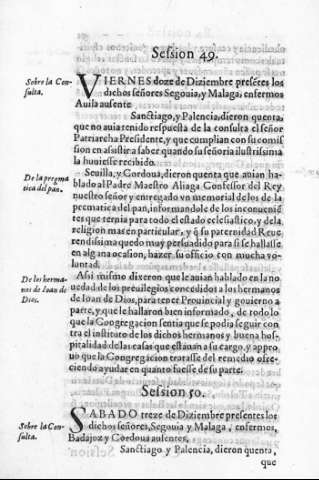 Session 49.
Sobre la Con-
sulta.
VIERNES doze de Diziembre presẽtes los
dichos señores Segouia, y Malaga, enfermos
Auila ausente
Sanctiago, y Palencia, dieron quenta,
que no auia tenido respuesta de la consulta el señor
Patriarcha Presidente, y que cumplian con su comis
sion en assistir a saber quando su señoria illustrissima
la huuiesse recibido.
De la pregma
tica del pan.
Seuilla, y Cordoua, dieron quenta que auian ha-
blado al Padre Maestro Aliaga Confessor del Rey
nuestro señor y entregado vn memorial de los de la
prematica del pan, informandole de los inconuenië
tes que ternia para todo el estado ecclesiastico, y de la
religion mas en particular, y q̃ su paternidad Reue-
rendissima quedo muy persuadido para si se hallasse
en alguna ocasion, hazer su officio con mucha vo-
luntad.
De los herma-
nos de Ioan de
Dios.
Assi mismo dixeron que le auian hablado en la no
uedad de los preuilegios concedidos a los hermanos
de Ioan de Dios, para tener Prouincial y gouierno a
parte, y que le hallaron bien informado, de todo lo
que la Congregacion sentia que se podia seguir con-
tra el instituto de los dichos hermanos y buena hos-
pitalidad de las casas que estauan a su cargo, y appro
uo que la Congregacion tratasse del remedio ofre-
ciendo ayudar en quanto fuesse de su parte.
Session 50.
Sobre la Con-
sulta.
SABADO treze de Diziembre presentes los
dichos señores, Segouia y Malaga, enfermos,
Badajoz y Cordoua ausentes.
Sanctiago y Palencia, dieron quenta,
que